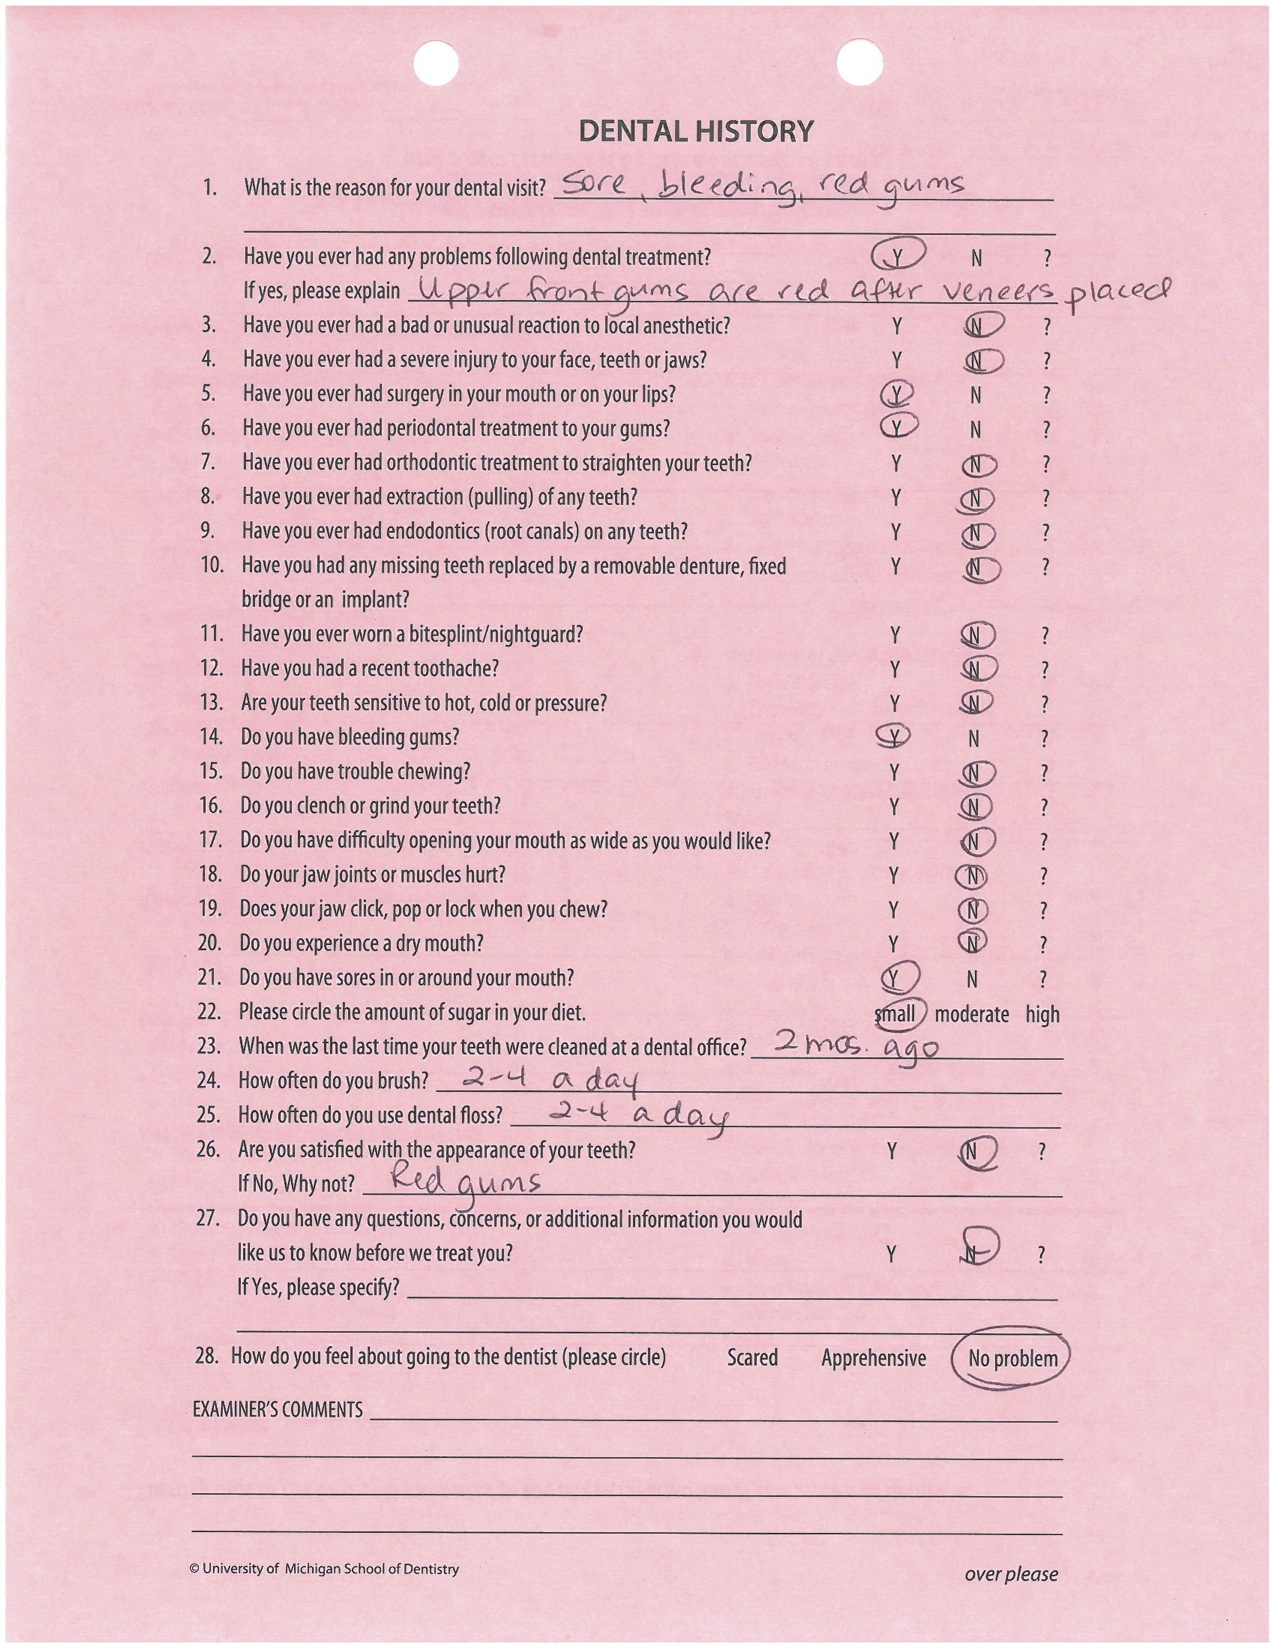 DENTAL HISTORY
1. What is the reason for your dental visit? Sore, bleeding, red gums
2. Have you ever had any problems following dental treatment? Y N ?
If yes, please explain Upper front gums are red after veneers placed
3. Have you ever had a bad or unusual reaction to local anesthetic? Y N ?
4. Have you ever had a severe injury to your face, teeth or jaws? Y N ?
5. Have you ever had surgery in your mouth or on your lips? Y N ?
6. Have you ever had periodontal treatment to your gums? Y N ?
7. Have you ever had orthodontic treatment to straighten your teeth? Y N ?
8. Have you ever had extraction (pulling) of any teeth? Y N ?
9. Have you ever had endodontics (root canals) on any teeth? Y N ?
10. Have you had any missing teeth replaced by a removable denture, fixed Y N ?
bridge or an implant?
11. Have you ever worn a bitesplint/nightguard? Y N ?
12. Have you had a recent toothache? Y N ?
13. Are your teeth sensitive to hot, cold or pressure? Y N ?
14. Do you have bleeding gums? Y N ?
15. Do you have trouble chewing? Y N ?
16. Do you clench or grind your teeth? Y N ?
17. Do you have difficulty opening your mouth as wide as you would like? Y N ?
18. Do your jaw joints or muscles hurt? Y N ?
19. Does your jaw click, pop or lock when you chew? Y N ?
20. Do you experience a dry mouth? Y N ?
21. Do you have sores in or around your mouth? Y N ?
22. Please circle the amount of sugar in your diet. small moderate high
23. When was the last time your teeth were cleaned at a dental office? 2 mos. ago
24. How often do you brush? 2-4 a day
25. How often do you use dental floss? 2-4 a day
26. Are you satisfied with the appearance of your teeth? Y N ?
If No, Why not? Red gums
27. Do you have any questions, concerns, or additional information you would
like us to know before we treat you? Y N ?
If Yes, please specify?
28. How do you feel about going to the dentist (please circle) Scared Apprehensive No problem
EXAMINER'S COMMENTS
© University of Michigan School of Dentistry
over please